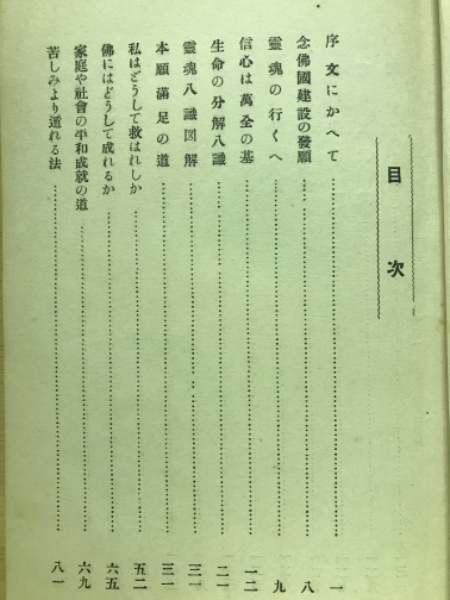 目次
序文にかへて 一
念佛國建設の發願 八
靈魂の行くへ 九
信心は萬全の基 一二
生命の分解八識 二一
靈魂八識図解 三一
本願滿足の道 三一
私はどうして救はれしか 五二
佛にはどうして成れるか 六五
家庭や社會の平和成就の道 六九
苦しみより遁れる法 八一